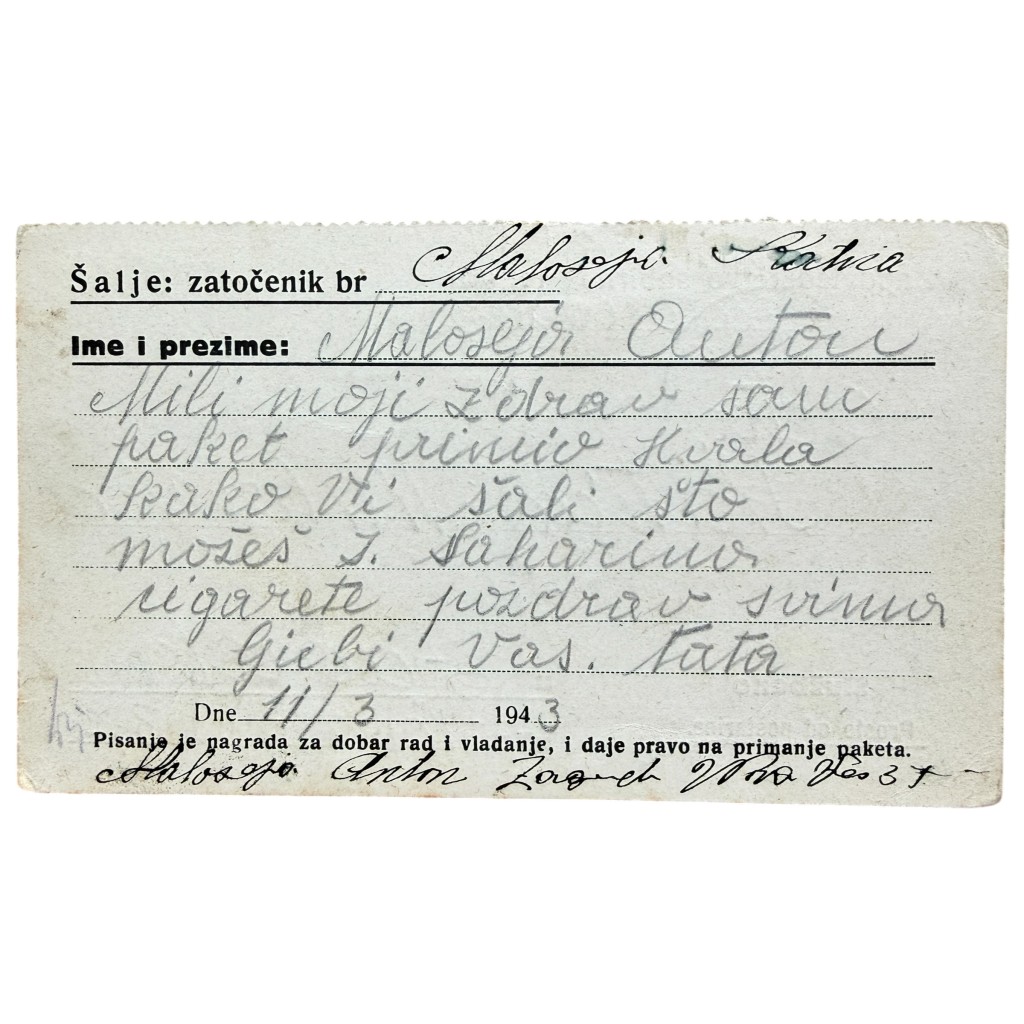 Šalje: zatočenik br Maloseja Katica
Ime i prezime: Maloseja Anton
Mili moji zdrav sam
paket primio Hvala
kako Vi šali što
možeš I. Saharina
cigarete pozdrav svima
Giebi Vas. tata
Dne 11/3 1943
Pisanje je nagrada za dobar rad i vladanje, i daje pravo na primanje paketa.
Maloseja Anton Zagreb Nova Ves 3